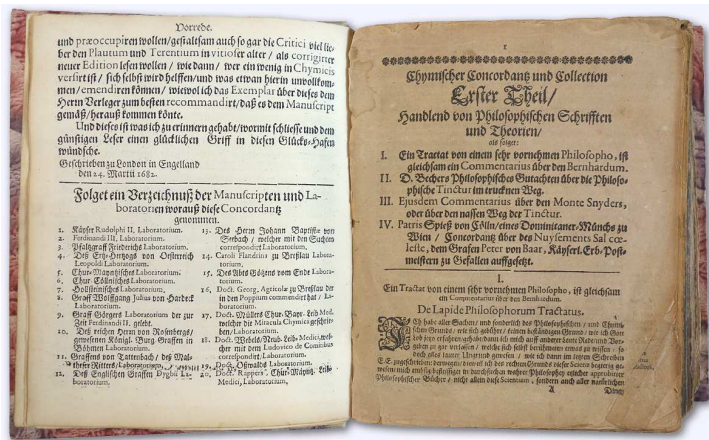 Vorrede.
und præoccupiren wollen/gestaltsam auch so gar die Critici viel lie-
ber den Plautum und Terentium in vitioser alter / als corrigirter
neuer Edition lesen wollen / wie dann / wer ein wenig in Chymicis
versirt ist / sich selbst wird helffen/und was etwan hierin unvollkom-
men/emendiren können / wiewol ich das Exemplar über dieses dem
Herrn Verleger zum besten recommandirt/ daß es dem Manuscript
gemäß/ herauß kommen könte.
Und dieses ist was ich zu erinnern gehabt/wormit schliesse und dem
günstigen Leser einen glücklichen Griff in diesen Glücks-Hafen
wündsche.
Geschrieben zu London in Engelland
den 24. Martii 1682.
Folget ein Verzeichnuß der Manuscripten und La-
boratorien worauß diese Concordantz
genommen.
1. Käyser Rudolphi II, Laboratorium.
2. Ferdinandi III, Laboratorium.
3. Pfaltzgraff Friederichs Laboratorium.
4. Deß Ertz-Hertzogs von Oesterreich
Leopoldi Laboratorium.
5. Chur-Mayntzisches Laboratorium.
6. Chur-Cöllnisches Laboratorium.
7. Hollsteinisches Laboratorium.
8. Graff Wolffgang Julius von Hardeck
Laboratorium.
9. Graff Görgers Laboratorium der zur
Zeit Ferdinandi II. gelebt.
10. Deß reichen Herrn von Rosenbergs/
gewesenen Königl. Burg Graffen in
Böhmen Laboratorium.
11. Graffens von Tattenbach / deß Mal-
theser Ritters/Laboratorium.
12. Deß Englischen Graffen Dygbii La-
boratorium.
13. Des Herrn Johann Baptistæ von
Seebach / welcher mit den Suchten
correspondirt Laboratorium.
14. Caroli Flandrini zu Breßlau Labora-
torium.
15. Des Abts Götzens vom Ende Labora-
torium.
16. Doct. Georg. Agricolæ zu Breßlau der
in den Poppium commendirt hat / La-
boratorium.
17. Doct. Müllers Chur-Bayr. Leib Med.
welcher die Miracula Chymica geschrie-
ben/Laboratorium.
18. Doct. Webels/Neub. Leib-Medici,wel-
cher mit dem Ludovico de Comitibus
correspondirt/Laboratorium.
19. Doct. Oßwalds Laboratorium.
20. Doct. Rappers / Chur-Mayntz. Leib-
Medici, Laboratorium.
1
Chymischer Concordantz und Collection
Erster Theil/
Handlend von Philosophischen Schrifften
und Theorien/
als folget:
I. Ein Tractat von einem sehr vornehmen Philosopho, ist
gleichsam ein Commentarius über den Bernhardum.
II. D. Bechers Philosophisches Gutachten über die Philoso-
phische Tinctur im trucknen Weg.
III. Ejusdem Commentarius über den Monte Snyders,
oder über den nassen Weg der Tinctur.
IV. Patris Spieß von Cölln/eines Dominicaner-Münchs zu
Wien / Concordantz über des Nuysements Sal cœ-
leste, dem Grafen Peter von Baar, Käyserl. Erb-Post-
meistern zu Gefallen auffgesetzt.
I.
Ein Tractat von einem sehr vornehmen Philosopho, ist gleichsam
ein Commentarius über den Bernhardum.
De Lapide Philosophorum Tractatus.
Ich habe aller Sachen/ und sonderlich des Philosophischen / und Chymi-
schen Grunds / wie sich gebühret / keinen beständigen Grund / wie ich Gott
lob jetzo erfahren gehabt/dann ich mich auff anderer Leute Rede und Vor-
geben zu gar verlassen / welche sich selbst berühmten etwas zu wissen / so
doch alles lauter Ungrund gewesen / wie ich dann im letzten Schreiben
E.E. zugeschrieben:
Philosophischer Bücher / nicht allein diese Scientiam / sondern auch aller natürlichen
A
Ding/